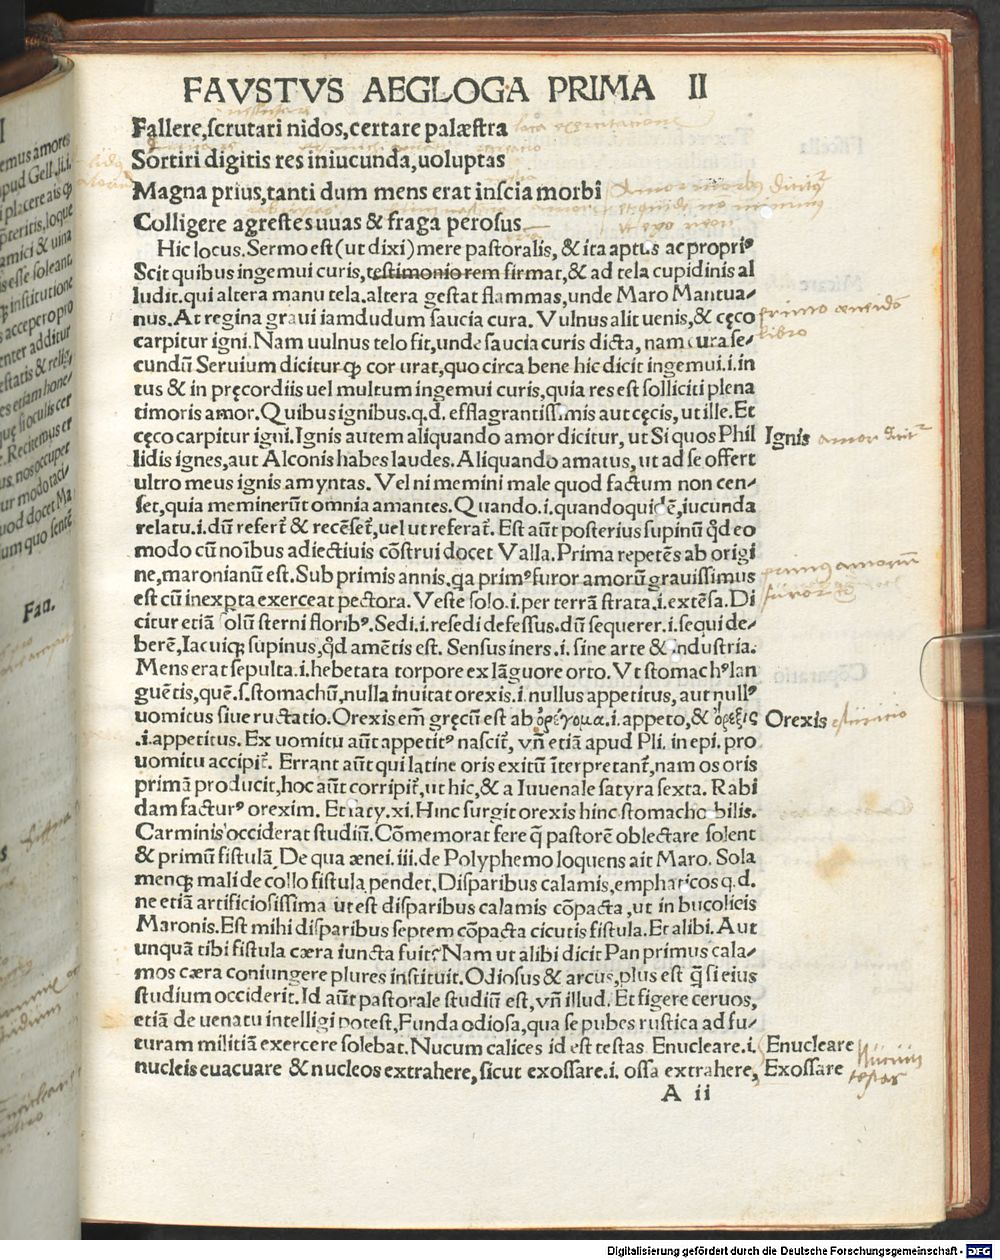 FAVSTVS AEGLOGA PRIMA II
Fallere,scrutari nidos,certare palæstra
Sortiri digitis res iniucunda,uoluptas
Magna prius,tanti dum mens erat inscia morbi
Colligere agrestes uuas & fraga perosus
Hic locus.Sermo est(ut dixi)mere pastoralis,& ita aptus ac propriꝰ
Scit quibus ingemui curis,testimonio rem firmat,& ad tela cupidinis al
ludit.qui altera manu tela.altera gestat flammas,unde Maro Mantua-
nus.At regina graui iamdudum saucia cura. Vulnus alit uenis,& cęco
carpitur igni.Nam uulnus telo fit,unde saucia curis dicta, nam cura se-
cundũ Seruium dicitur ꝙ cor urat,quo circa bene hic dicit ingemui.i.in
tus & in pręcordiis uel multum ingemui curis,quia res est solliciti plena
timoris amor.Quibus ignibus.q.d. efflagrantissimis aut cęcis,ut ille.Et
cęco carpitur igni.Ignis autem aliquando amor dicitur, ut Si quos Phil
lidis ignes,aut Alconis habes laudes.Aliquando amatus,ut ad se offert
ultro meus ignis amyntas. Vel ni memini male quod factum non cen-
set,quia meminerũt omnia amantes.Quando.i.quandoquidẽ,iucunda
relatu.i.dũ referť & recẽseť,uel ut referať. Est aũt posterius supinũ ꝗd eo
modo cũ noĩbus adiectiuis cõstrui docet Valla.Prima repetẽs ab origi
ne,maronianũ est.Sub primis annis.qa primꝰfuror amorũ grauissimus
est cũ inexpta exerceat pectora.Veste solo.i.per terrã strata.i.extẽsa.Di
citur etiã solũ sterni floribꝰ.Sedi.i.resedi defessus.dũ sequerer.i.sequi de-
berẽ,Iacuiqꝫ supinus,ꝗd amẽtis est. Sensus iners.i. sine arte & industria.
Mens erat sepulta.i.hebetata torpore ex lãguore orto.Vt stomachꝰlan
guẽtis,quẽ.s.stomachũ,nulla inuitat orexis.i nullus appetitus, aut nullꝰ
uomitus siue ructatio.Orexis em̃ gręcũ est ab ὀρέγομα.i.appeto,& ὄρεξις
.i.appetitus. Ex uomitu aũt appetitꝰ nasciť, vñ etiã apud Pli. in epi. pro
uomitu accipiť. Errant aũt qui latine oris exitũ ĩterpretanť,nam os oris
primã producit,hoc aũt corripiť,ut hic,& a Iuuenale satyra sexta. Rabi
dam facturꝰ orexim. Et saty.xi.Hinc surgit orexis hinc stomacho bilis.
Carminis occiderat studiũ. Cõmemorat fere ꝗ pastorẽ oblectare solent
& primũ fistulã De qua ænei.iii.de Polyphemo loquens ait Maro. Sola
menqꝫ mali de collo fistula pendet.Disparibus calamis,emphaticos q.d.
ne etiã artificiosissima ut est disparibus calamis cõpacta ,ut in bucolicis
Maronis.Est mihi disparibus septem cõpacta cicutis fistula.Et alibi. Aut
unquã tibi fistula cæra iuncta fuit?Nam ut alibi dicit Pan primus cala-
mos cæra coniungere plures instituit.Odiosus & arcus,plus est ꝗ̃ si eius
studium occiderit.Id aũt pastorale studiũ est,vñ illud. Et figere ceruos,
etiã de uenatu intelligi potest,Funda odiosa,qua se pubes rustica ad fu-
turam militiã exercere solebat.Nucum calices id est testas. Enucleare.i.
nucleis euacuare & nucleos extrahere,sicut exossare.i. ossa extrahere,
A ii
primo æneidos
libro
Ignis amor dicitur
primus amorum
furor
Orexis
Enucleare
Exossare